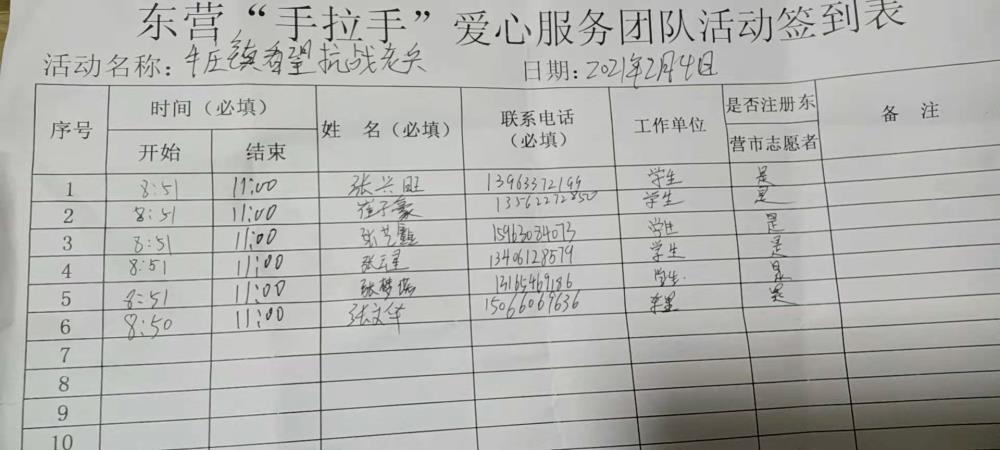 东营“手拉手”爱心服务团队活动签到表
活动名称：牛庄镇看望抗战老兵 日期：2021年2月4日
序号 时间（必填） 姓 名（必填） 联系电话（必填） 工作单位 是否注册东营市志愿者 备 注
开始 结束
1 8:51 11:00 张兴旺 13963372199 学生 是
2 8:51 11:00 崔子豪 13562272850 学生 是
3 8:51 11:00 15963084073 学生 是
4 8:51 11:00 张云星 13406128579 学生 是
5 8:51 11:00 张梦瑶 13165469186 学生 是
6 8:50 11:00 张文华 15066069636 是
7
8
9
10